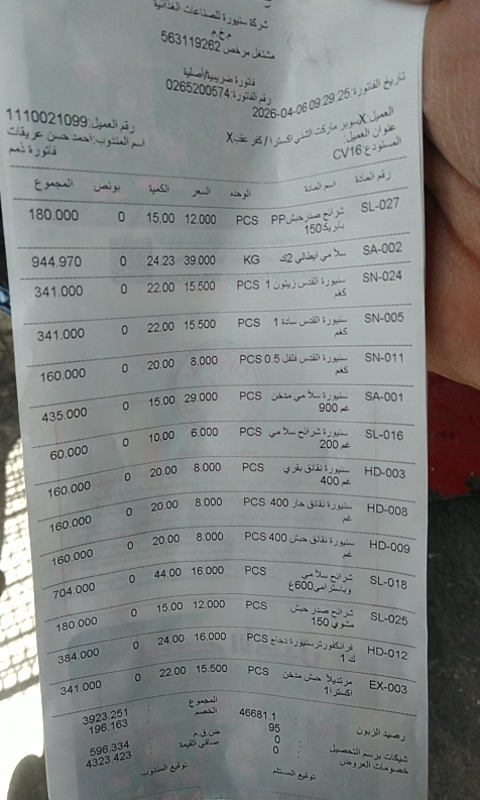 شركة سنيورة للصناعات الغذائية
م.خ.م
مشتغل مرخص 563119262
فاتورة ضريبية/أصلية
رقم الفاتورة:0265200574
تاريخ الفاتورة:2026-04-06 09:29:25
العميل:Xسوبر ماركت الشني اكسترا / كفر عقبX
رقم العميل:1110021099
عنوان العميل:
اسم المندوب:احمد حسن عريقات
المستودع:CV16
فاتورة ذمم
رقم المادة اسم المادة الوحده السعر الكمية بونص المجموع
SL-027 شرائح صدر حبش PP PCS 12.000 15.00 0 180.000
بابريكا150
SA-002 سلامي ايطالي 2ك KG 39.000 24.23 0 944.970
SN-024 سنيورة القدس زيتون 1 PCS 15.500 22.00 0 341.000
كغم
SN-005 سنيورة القدس سادة 1 PCS 15.500 22.00 0 341.000
كغم
SN-011 سنيورة القدس فلفل 0.5 PCS 8.000 20.00 0 160.000
كغم
SA-001 سنيورة سلامي مدخن PCS 29.000 15.00 0 435.000
900 غم
SL-016 سنيورة شرائح سلامي PCS 6.000 10.00 0 60.000
200 غم
HD-003 سنيورة نقانق بقري PCS 8.000 20.00 0 160.000
400 غم
HD-008 سنيورة نقانق حار 400 PCS 8.000 20.00 0 160.000
غم
HD-009 سنيورة نقانق حبش 400 PCS 8.000 20.00 0 160.000
غم
SL-018 شرائح سلامي PCS 16.000 44.00 0 704.000
وباسترامي600غ
SL-025 شرائح صدر حبش PCS 12.000 15.00 0 180.000
مشوي 150
HD-012 فرانكفورتر سنيورة دجاج PCS 16.000 24.00 0 384.000
1 ك
EX-003 مرتديلا حبش مدخن PCS 15.500 22.00 0 341.000
اكسترا1
رصيد الزبون 46681.1 المجموع : 3923.251
95 الخصم : 196.163
شيكات برسم التحصيل 0 ض.ق.م : 596.334
خصومات العروض 0 صافي القيمة : 4323.423
توقيع المستلم توقيع المندوب